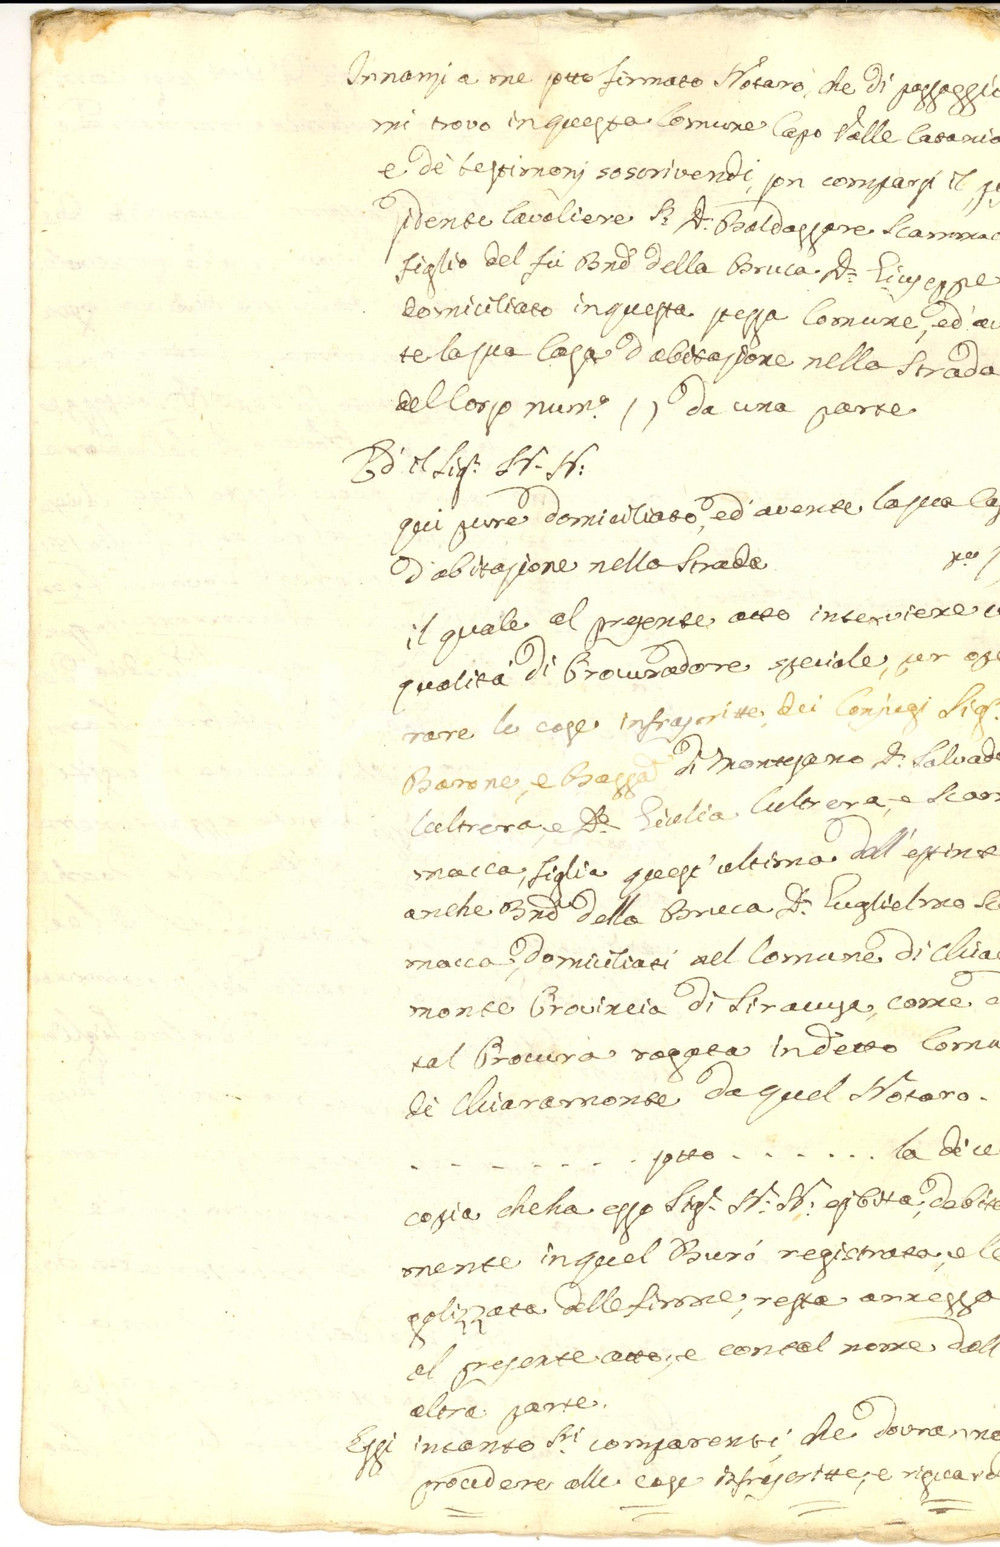 Innanzi a me sotto firmato Notaro, che di passaggio
mi trovo in questa Comune Capo Valle Catania
e de' testimonj soscrivendi, son comparsi il
sidente Cavaliere Sr. Dn. Baldassare Scammac
figlio del fù Bnē della Bruca Dn. Giuseppe
domiciliato in questa stessa Comune, ed' av
te la sua Casa d'abitazione nella Strada
del Corso num.o ( ) da una parte
Ed' il Sigr. N. N:
qui pure domiciliato, ed' avente la sua Ca
d'abitazione nella Strada
il quale al presente atto interviene
qualità di Procuradore speciale, per ope
rare le cose infrascritte, dei Conjugi Sigr.
Barone, e Baronssa di Montesano Dn. Salvado
Cultrera, e Da. Giulia Cultrera, e Scam
macca, figlia quest' ultima dall' estinto
anche Bnē della Bruca Dn. Guglielmo Sc
macca, domiciliati nel Comune di Chia
monte Provincia di Siracusa, come
tal Procura rogata in detto Comu
di Chiaramonte da quel Notaro.
. . . . . . . . . sotto . . . . . . la di cu
copia che ha esso Sigr. N: N: esibita, debita
mente in quel Buró registrata, e le
galizzata delle firme, resta annessa
al presente atto, e con tal nome dall
altra parte.
Essi intanto Sri comparenti, che dovranno
procedere alle cose infrascritte, e riguard